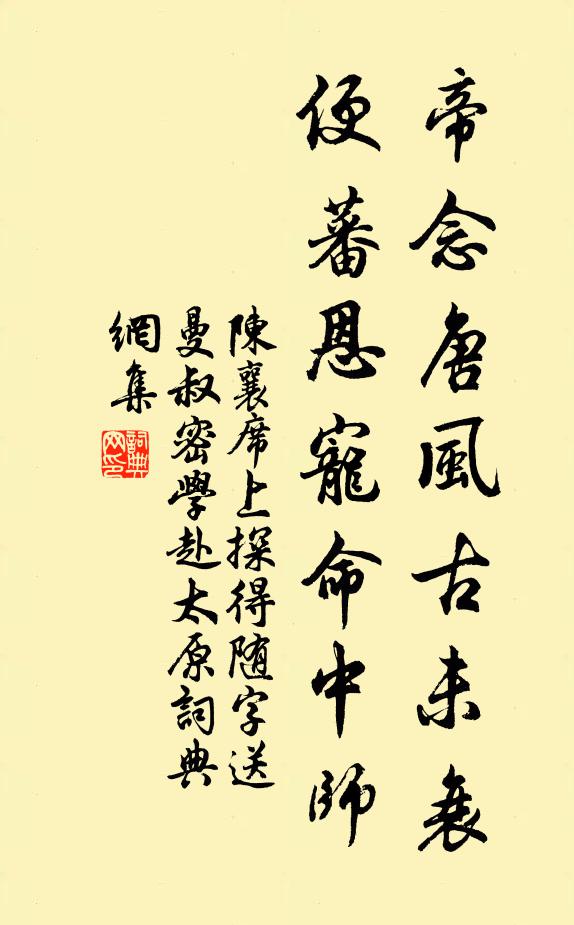 帝念唐風古未衰
便蕃恩寵命中師
陳襄席上探得随字送
曼叔密學赴太原詞典
網集
詞典網印